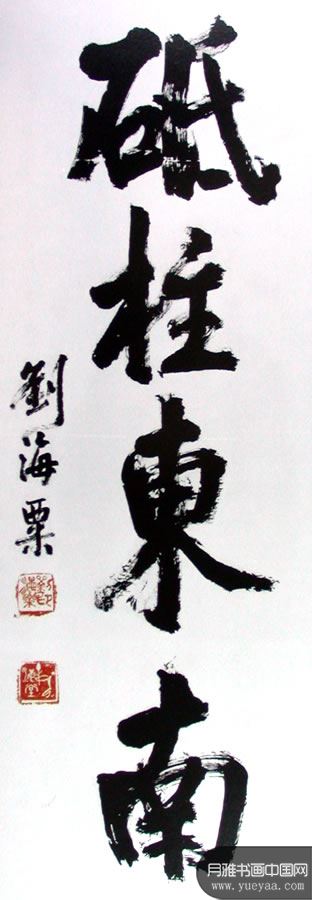 砥柱東南
劉海粟
月雅书画中国网
www.yueyaa.com